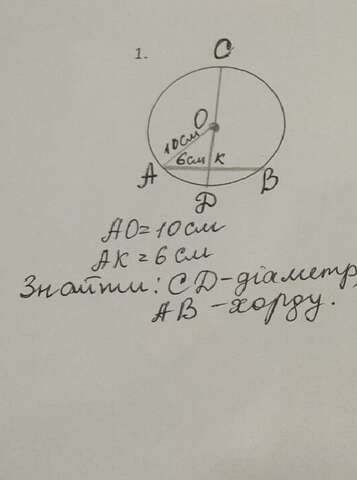 1.
C
O
10см
6см K
A
B
D
AO=10см
AK=6см
Знайти: CD-діаметр,
AB-хорду.